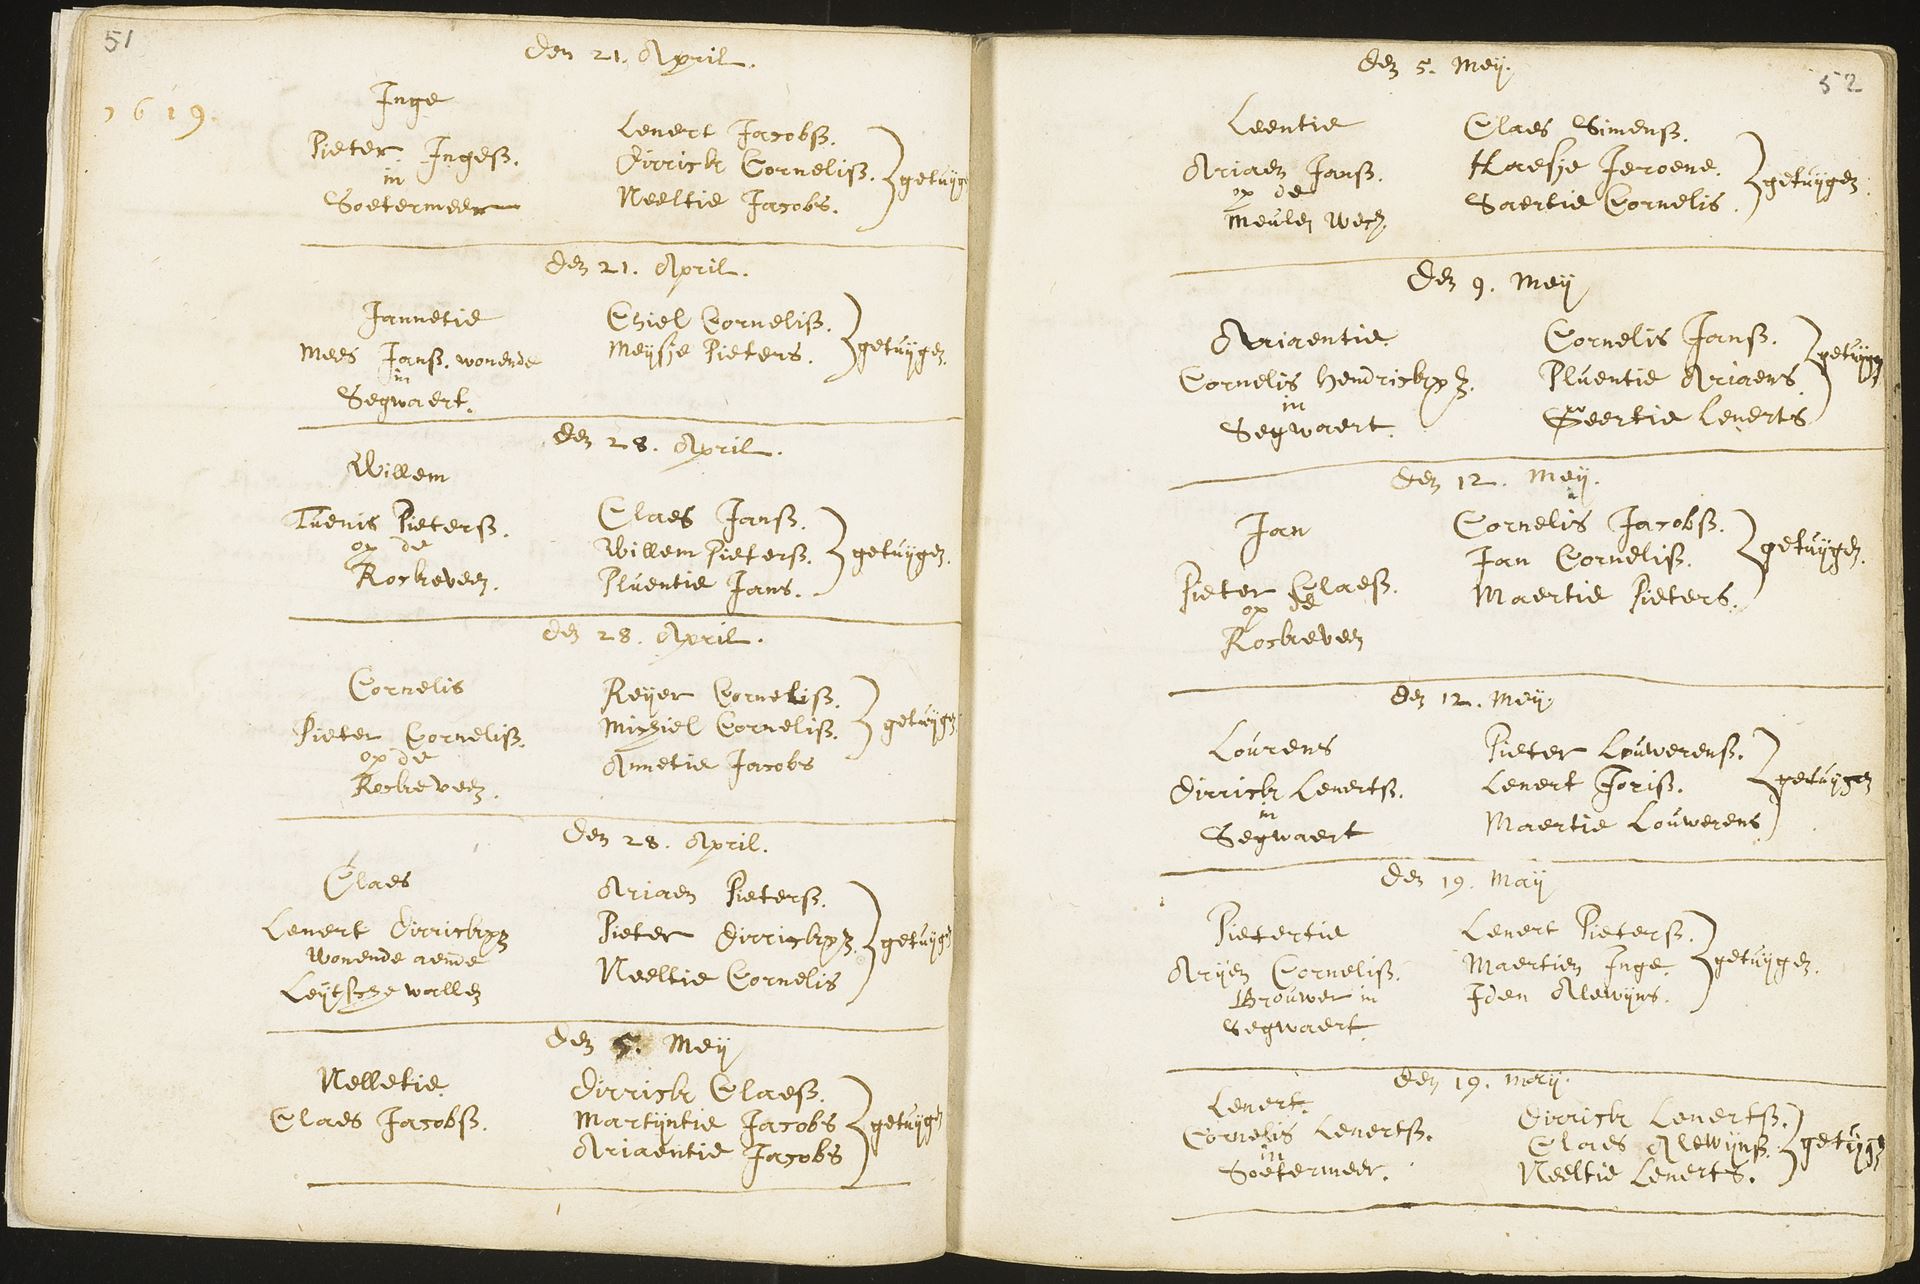 51
1619.
den 21. April.
Inge
Pieter Ingesß.
in
Soetermeer
Lenert Jacobsß.
Dirrick Cornelisß.
Neeltie Jacobs.
getuijge
den 21. April.
Jannetie
Mees Jansß. wonende
in
Segwaert.
Chiel Cornelisß.
Meijsje Pieters.
getuijgen.
den 28. April.
Willem
Tuenis Pietersß.
op de
Rockeveen.
Claes Jansß.
Willem Pietersß.
Pluentie Jans.
getuijgen.
den 28. April.
Cornelis
Pieter Cornelisß.
op de
Rockeveen.
Reijer Cornelisß.
Michiel Cornelisß.
Annetie Jacobs
getuijgen
den 28. April.
Claes
Lenert Dirrickxz
wonende aende
Leijtsche wallen
Ariaen Pietersß.
Pieter Dirrickxz.
Neeltie Cornelis
getuijgen
den 5. Meij
Nelletie
Claes Jacobsß.
Dirrick Claesß.
Martijntie Jacobs
Ariaentie Jacobs
getuijgen
52
den 5. Meij.
Leentie
Ariaen Jansß.
op de
Meulen wech.
Claes Simensß.
Haesje Jeroens.
Saertie Cornelis.
getuijgen.
Den 9. Meij
Ariaentie.
Cornelis Hendrickxz.
in
Segwaert.
Cornelis Jansß.
Pluentie Ariaens
Geertie Lenerts
getuijgen
den 12. Meij.
Jan
Pieter Claesß.
op de
Rockeveen
Cornelis Jacobsß.
Jan Cornelisß.
Maertie Pieters.
getuijgen.
den 12. Meij.
Lourens
Dirrick Lenertsß.
in
Segwaert
Pieter Louwerensß.
Lenert Jorisß.
Maertie Louwerens
getuijgen
den 19. Maij
Pietertie
Arijen Cornelisß.
Brouwer in
Segwaert.
Lenert Pietersß.
Maertien Inge.
Iden Alewijns.
getuijgen.
den 19. Meij.
Lenert.
Cornelis Lenertsß.
in
Soetermeer.
Dirrick Lenertsß.
Claes Alewijnsß.
Neeltie Lenerts.
getuijgen